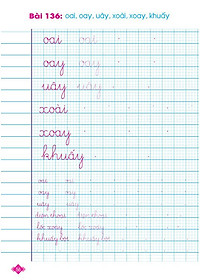 Bài 136: oai, oay, uây, xoài, xoay, khuấy
oai oai
oay oay
uây uây
xoài
xoay
khuấy
oai oai
oay oay
uây uây
điện thoại điện thoại
lốc xoáy lốc xoáy
khuấy bột khuấy bột